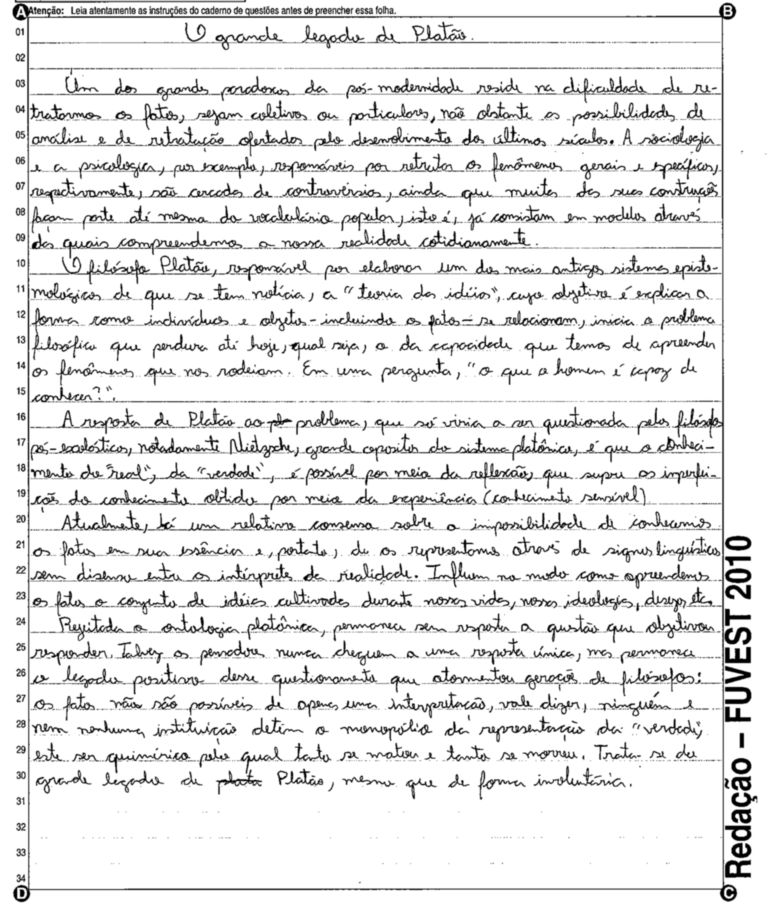 Atenção: Leia atentamente as instruções do caderno de questões antes de preencher essa folha.
O grande legado de Platão.
Um dos grandes paradoxos da pós-modernidade reside na dificuldade de re-
tratarmos os fatos, sejam coletivos ou particulares, não obstante as possibilidades de
análise e de retratação ofertadas pelo desenvolvimento dos últimos séculos. A sociologia
e a psicologia, por exemplo, responsáveis por retratar os fenômenos gerais e específicos,
respectivamente, são cercadas de controvérsias, ainda que muitas das suas construções
façam parte até mesmo do vocabulário popular, isto é, já consistam em modelos através
dos quais compreendemos a nossa realidade cotidianamente.
O filósofo Platão, responsável por elaborar um dos mais antigos sistemas episte-
mológicos de que se tem notícia, a "teoria das idéias", cujo objetivo é explicar a
forma como indivíduos e objetos - incluindo os fatos - se relacionam, inicia o problema
filosófico que perdura até hoje, qual seja, o da capacidade que temos de apreender
os fenômenos que nos rodeiam. Em uma pergunta, "o que o homem é capaz de
conhecer?".
A resposta de Platão ao problema, que só viria a ser questionada pelos filósofos
pós-escolásticos, notadamente Nietzsche, grande opositor do sistema platônico, é que o conheci-
mento do "real", da "verdade", é possível por meio da reflexão, que supre as imperfei-
ções do conhecimento obtido por meio da experiência (conhecimento sensível)
Atualmente, há um relativo consenso sobre a impossibilidade de conhecermos
os fatos em sua essência e, portanto, de os representarmos através de signos linguísticos
sem dissenso entre os intérpretes da realidade. Influem no modo como apreendemos
os fatos o conjunto de idéias cultivadas durante nossas vidas, nossas ideologias, desejos, etc.
Rejeitada a ontologia platônica, permanece sem resposta a questão que objetivou
responder. Talvez os pensadores nunca cheguem a uma resposta única, mas permanece
o legado positivo desse questionamento que atormentou gerações de filósofos:
os fatos não são passíveis de apenas uma interpretação, vale dizer, ninguém e
nem nenhuma instituição detém o monopólio da representação da "verdade",
este ser quimérico pelo qual tanto se matou e tanto se morreu. Trata-se do
grande legado de Platão, mesmo que de forma involuntária.
Redação – FUVEST 2010